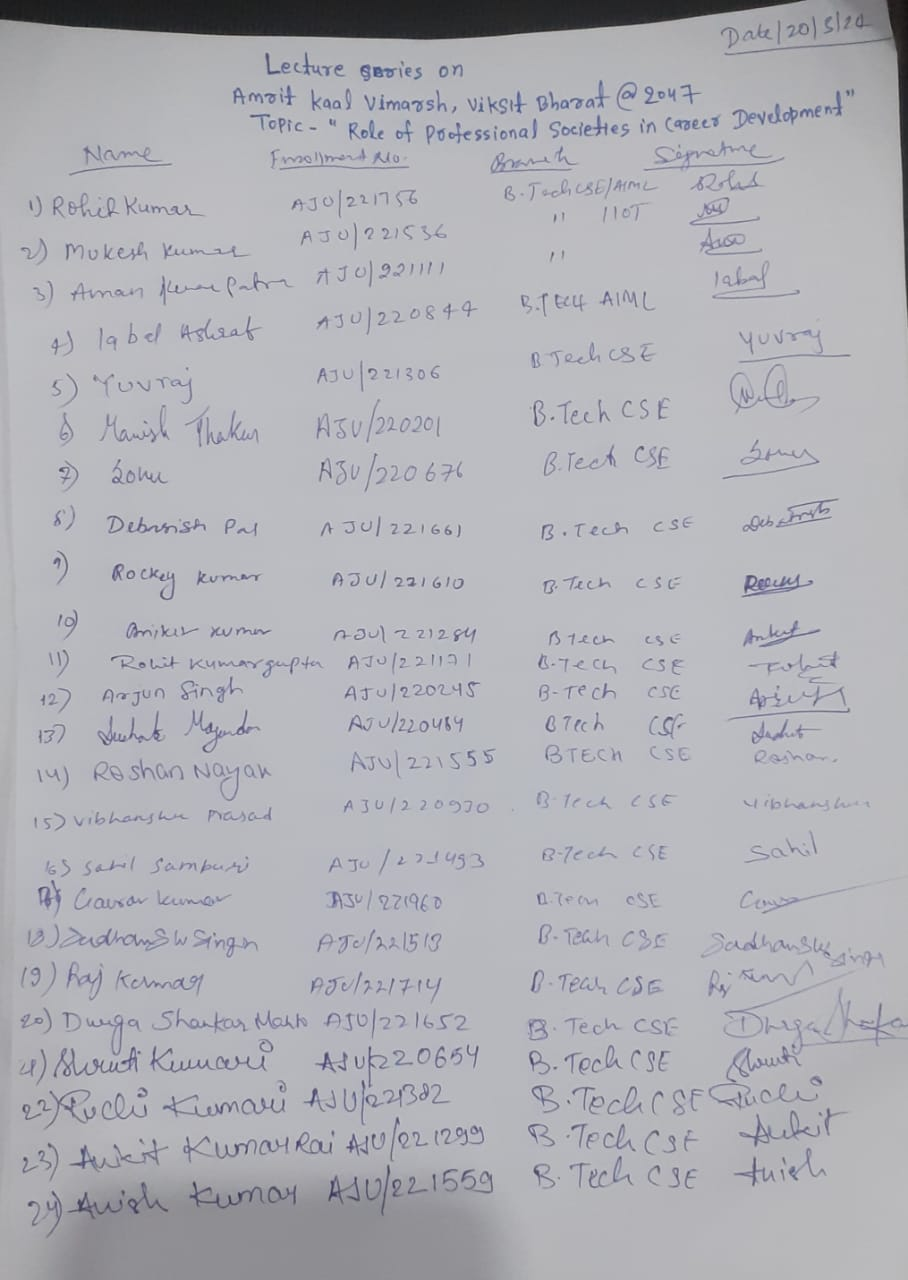 Date/20/5/24
Lecture series on
Amrit Kaal Vimarsh, Viksit Bharat @ 2047
Topic - "Role of Professional Societies in Career Development"
Name Enrollment No. Branch Signature
1) Rohit Kumar AJU/221756 B.Tech CSE/AIML Rohit
2) Mukesh Kumar AJU/221536 " IIOT
3) Aman Kumar Patra AJU/221111 "
4) Iqbal Ashraf AJU/220844 B.TECH AIML Iqbal
5) Yuvraj AJU/221306 B.Tech CSE Yuvraj
6) Manish Thakur AJU/220201 B.Tech CSE
7) Sonu AJU/220676 B.Tech CSE Sonu
8) Debasish Pal AJU/221661 B.Tech CSE
9) Rockey Kumar AJU/221610 B.Tech CSE
10) Kumar AJU/221284 B Tech CSE
11) Rohit Kumar gupta AJU/221171 B-Tech CSE Rohit
12) Arjun Singh AJU/220245 B-Tech CSE
13) AJU/220484 BTech CSE
14) Roshan Nayak AJU/221555 BTECH CSE Roshan.
15) Vibhanshu Prasad AJU/220930 B-Tech CSE Vibhanshu
16) Sahil AJU/221493 B-Tech CSE Sahil
17) Gaurav Kumar AJU/221960 B.Tech CSE
18) Sudhanshu Singh AJU/221513 B.Tech CSE Sudhanshu Singh
19) Raj Kumar AJU/221714 B.Tech CSE
20) Durga Shankar Mahto AJU/221652 B.Tech CSE Durga
21) Shruti Kumari AJU/220654 B.Tech CSE Shruti
22) Ruchi Kumari AJU/221382 B.Tech CSE Ruchi
23) Ankit Kumar Rai AJU/221299 B.Tech CSE Ankit
24) Anish Kumar AJU/221559 B.Tech CSE Anish